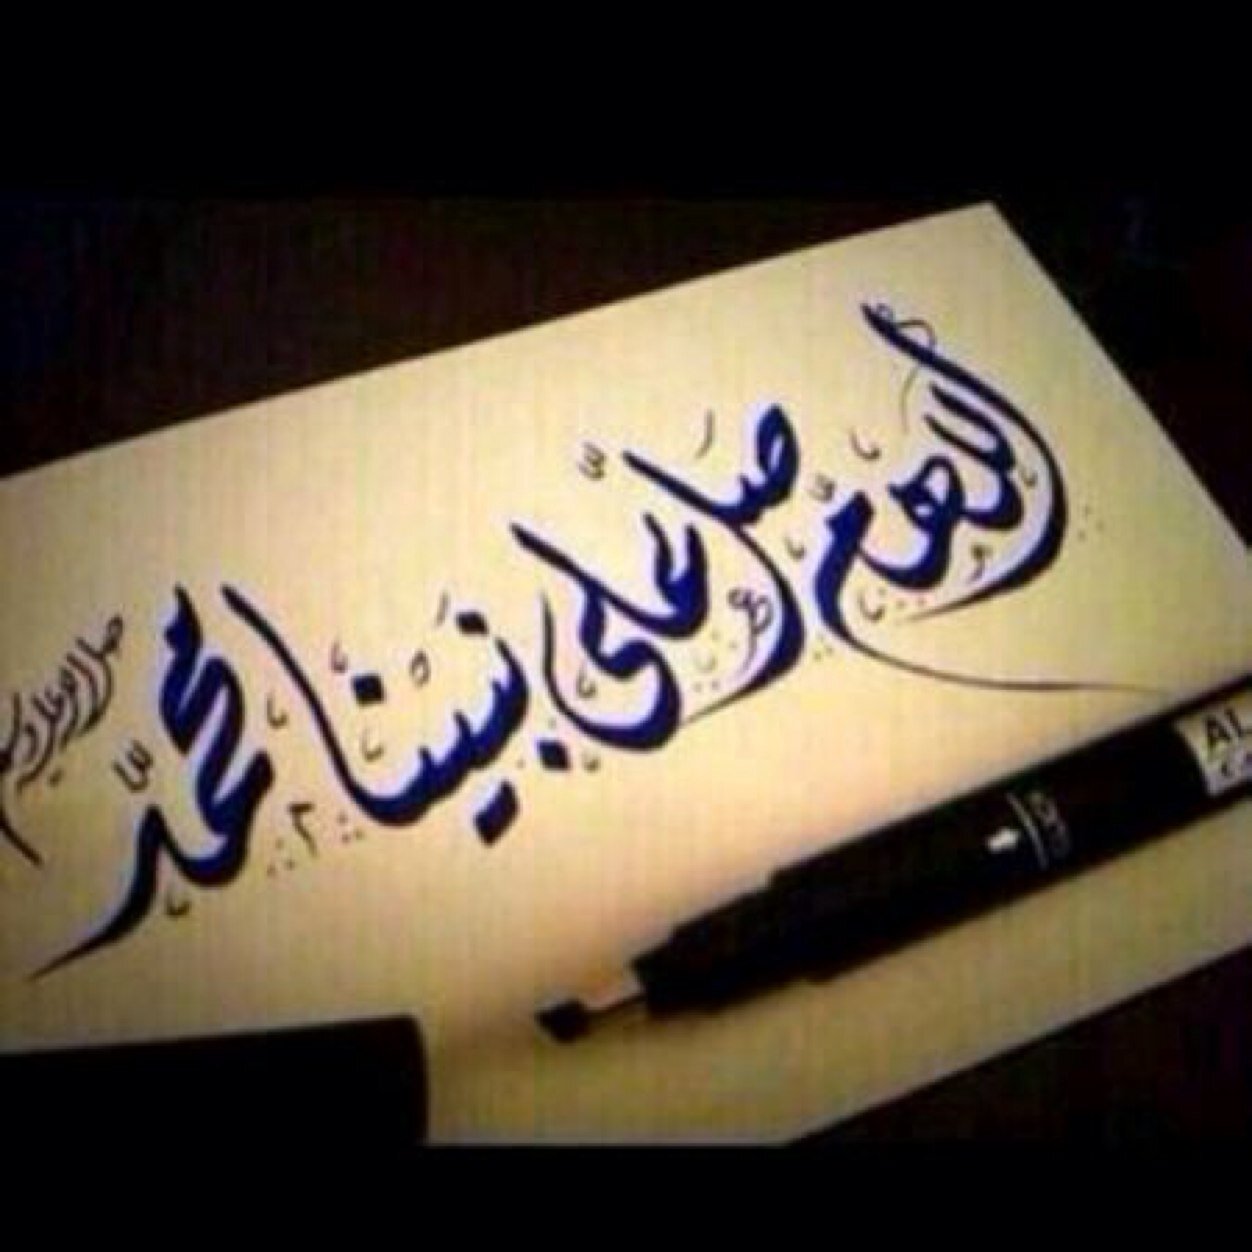 اللهم صل على نبينا محمد
صلى الله عليه وسلم
AL